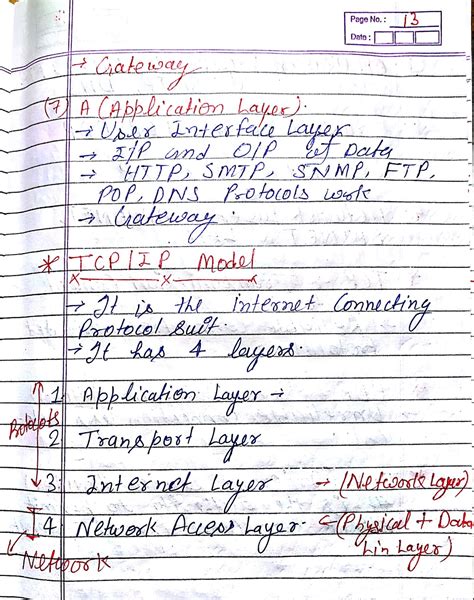 Page No.: 13
Date:
→ Gateway
(7) A (Application Layer).
→ User Interface Layer
→ I/P and O/P of Data
→ HTTP, SMTP, SNMP, FTP,
POP, DNS Protocols work
→ Gateway.
* TCP/IP Model
x x x
→ It is the internet Connecting
Protocol Suit.
→ It has 4 layers.
1. Application Layer →
Protocols
2 Transport Layer
3. Internet Layer → (Network Layer)
4. Network Access Layer. ← (Physical + Data
Lin Layer)
Network